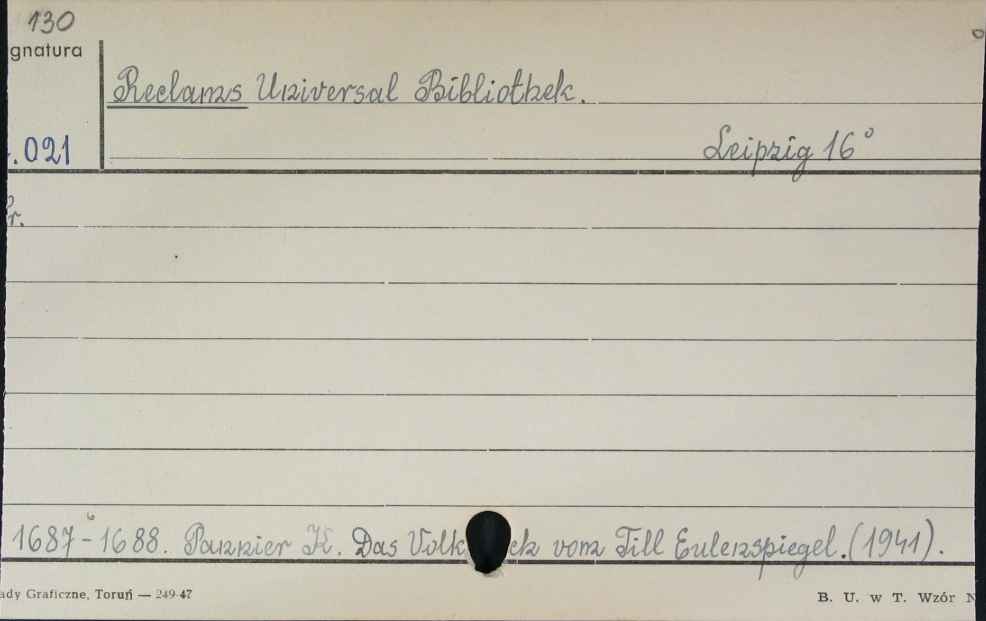 130
gnatura
Reclams Universal Bibliothek.
.021
Leipzig 16°
r.
1687-1688. Pannier K. Das Volk ch vom Till Eulenspiegel. (1941).
ady Graficzne, Toruń — 249-47
B. U. w T. Wzór N